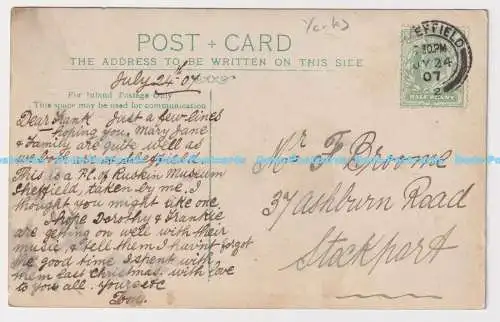 Yorks
POST + CARD
THE ADDRESS TO BE WRITTEN ON THIS SIDE
July 24th 07
For Inland Postage Only
This space may be used for communication
Dear Frank Just a few lines
hoping you, Mary Jane
& Family are quite well as
we
This is a P.C. of Ruskin Museum
Sheffield, taken by me. I
thought you might like one
I hope Dorothy & Frankie
are getting on well with their
music & tell them I havn't forgot
the good time I spent with
them last Christmas. with love
to you all. yours etc
Tom.
SHEFFIELD
30PM
JY 24
07
2
HALF PENNY
Mr F Broome
37 Ashburn Road
Stockport